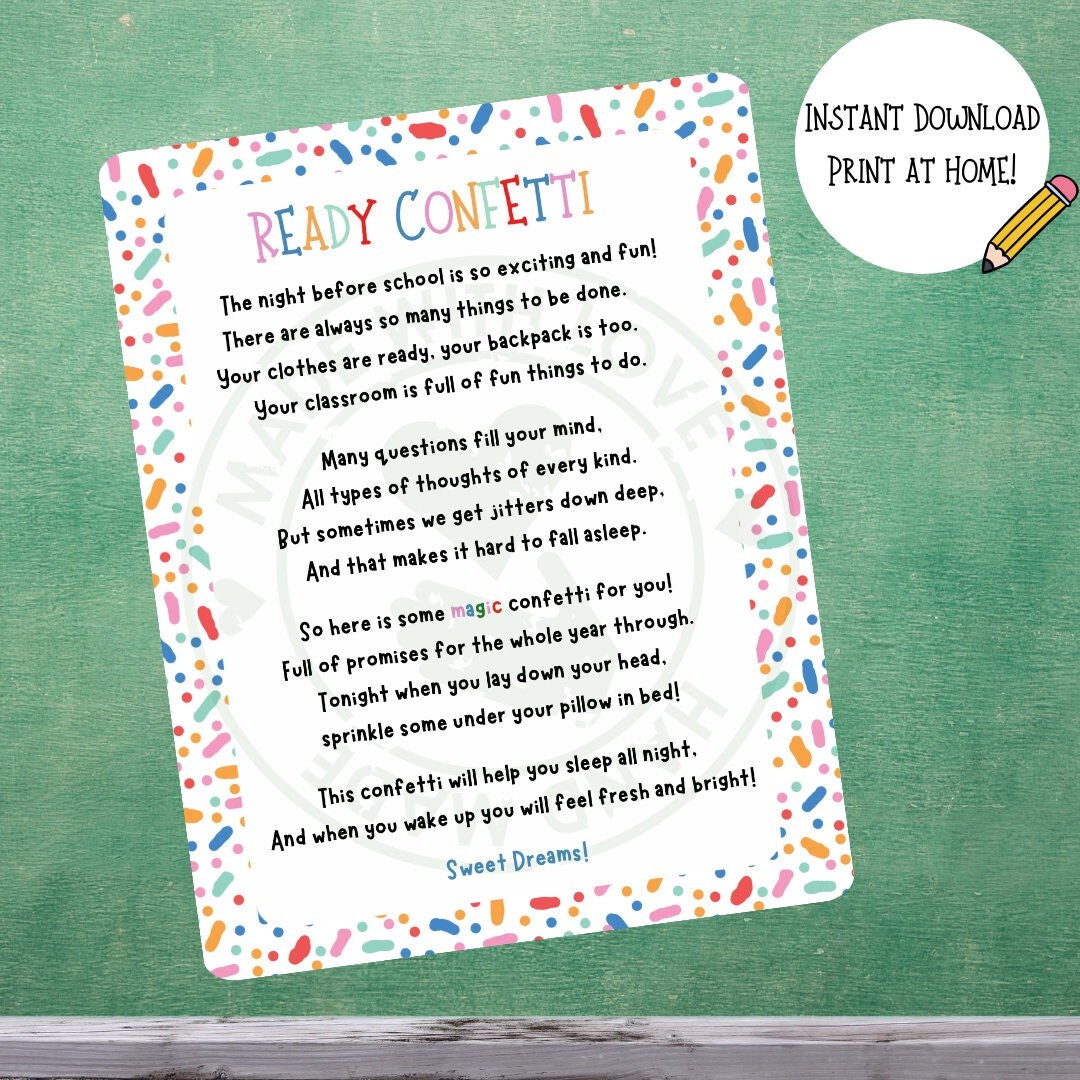 READY CONFETTI
The night before school is so exciting and fun!
There are always so many things to be done.
Your clothes are ready, your backpack is too.
Your classroom is full of fun things to do.
Many questions fill your mind,
All types of thoughts of every kind.
But sometimes we get jitters down deep,
And that makes it hard to fall asleep.
So here is some magic confetti for you!
Full of promises for the whole year through.
Tonight when you lay down your head,
sprinkle some under your pillow in bed!
This confetti will help you sleep all night,
And when you wake up you will feel fresh and bright!
Sweet Dreams!
INSTANT DOWNLOAD
PRINT AT HOME!
MADE WITH LOVE
HAND MADE